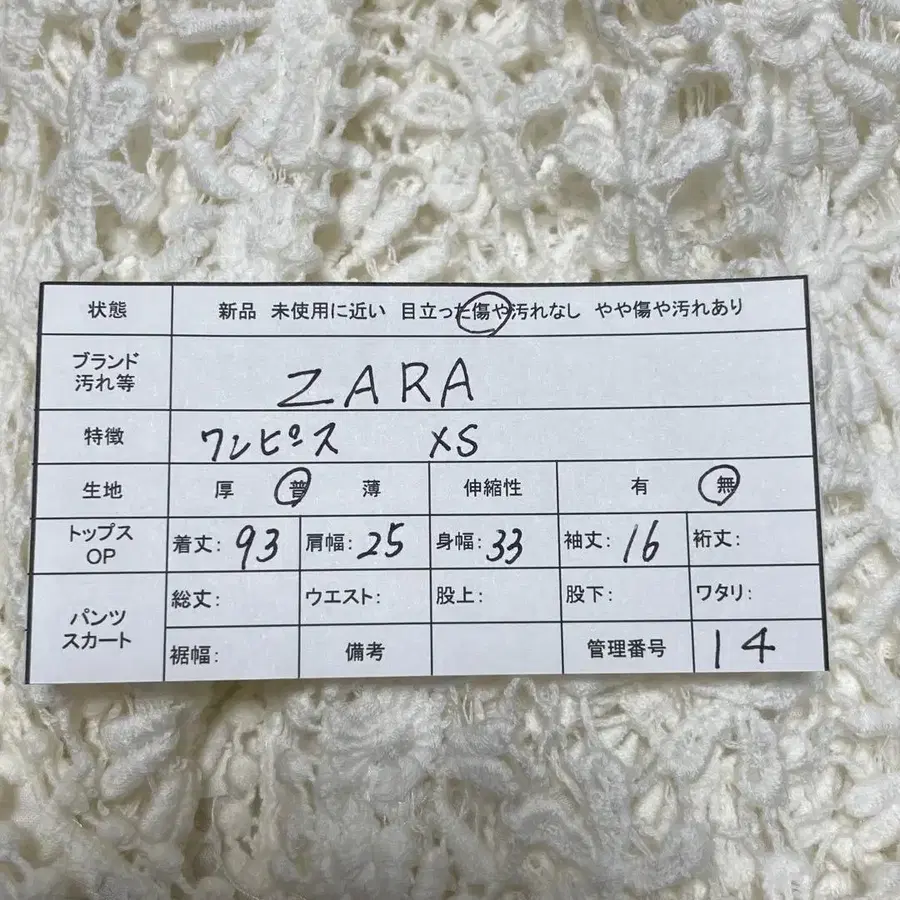 状態 新品 未使用に近い 目立った傷や汚れなし やや傷や汚れあり
ブランド
汚れ等 ZARA
特徴 ワンピース XS
生地 厚 普 薄 伸縮性 有 無
トップス
OP 着丈: 93 肩幅: 25 身幅: 33 袖丈: 16 裄丈:
パンツ
スカート 総丈: ウエスト: 股上: 股下: ワタリ:
裾幅: 備考 管理番号 14